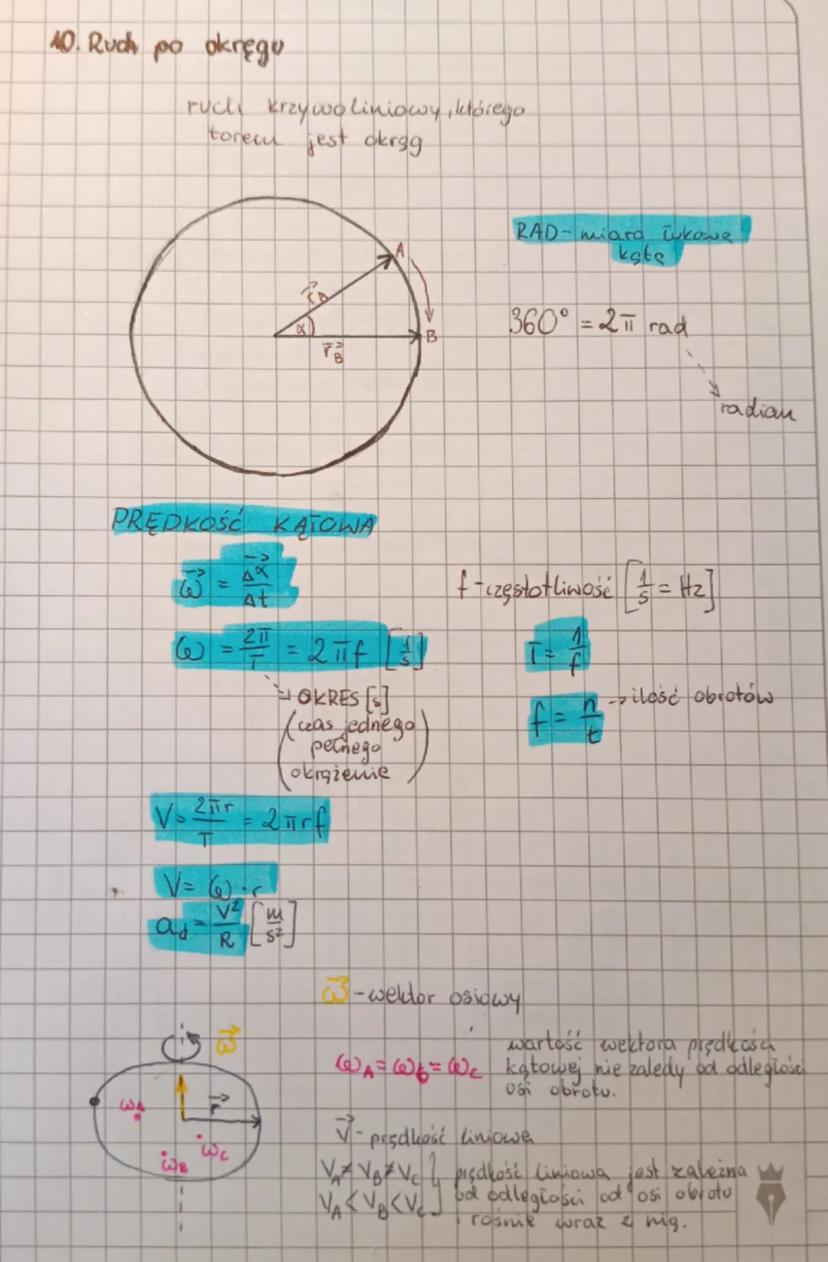 10. Ruch po okręgu
ruch krzywoliniowy, którego
torem jest okrąg
A
r⃗A
α
r⃗B
B
RAD - miara łukowa
kąta
360° = 2π rad
radian
PRĘDKOŚĆ KĄTOWA
ω⃗ = Δα⃗/Δt
ω = 2π/T = 2πf [1/s]
OKRES [s]
(czas jednego
pełnego
okrążenia)
f - częstotliwość [1/s = Hz]
T = 1/f
f = n/t → ilość obrotów
V = 2πr/T = 2πrf
V = ω · r
ad = V²/R [m/s²]
ω⃗ - wektor osiowy
ω⃗
r⃗
ωA
ωB
ωC
ωA = ωB = ωC
wartość wektora prędkości
kątowej nie zależy od odległości
osi obrotu.
V⃗ - prędkość liniowa
VA ≠ VB ≠ VC
VA < VB < VC
prędkość liniowa jest zależna
od odległości od osi obrotu
i rośnie wraz z nią.